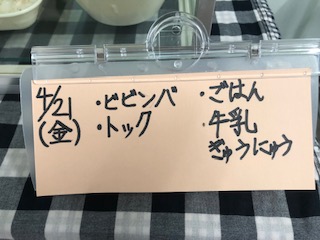 4/21
(金)
・ビビンバ
・トック
・ごはん
・牛乳
ぎゅうにゅう